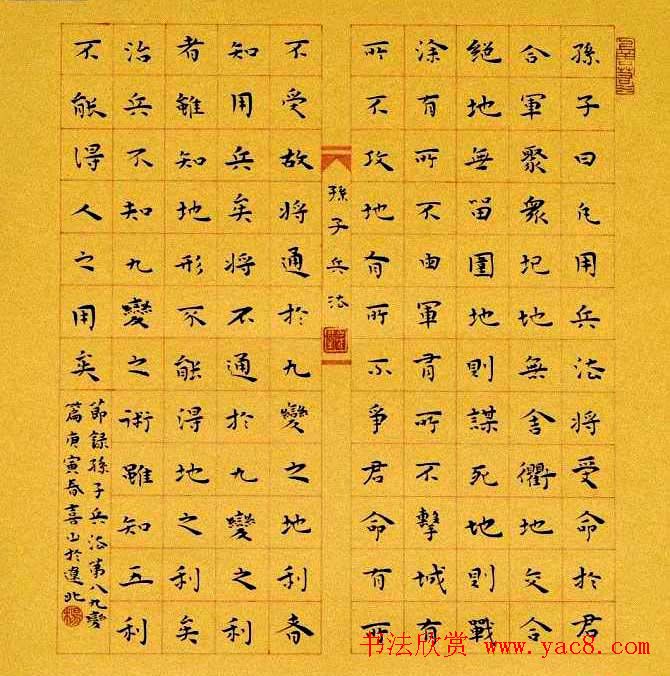 孫子曰凡用兵法將受命於君
合軍聚衆圮地無舍衢地交合
絕地無留圍地則謀死地則戰
涂有所不由軍有所不擊城有
所不攻地有所不爭君命有所
孫子兵法
不受故將通於九變之地利者
知用兵矣將不通於九變之利
者雖知地形不能得地之利矣
治兵不知九變之術雖知五利
不能得人之用矣
節錄孫子兵法第八九變
篇庚寅春喜山於遼北
书法欣赏 www.yac8.com